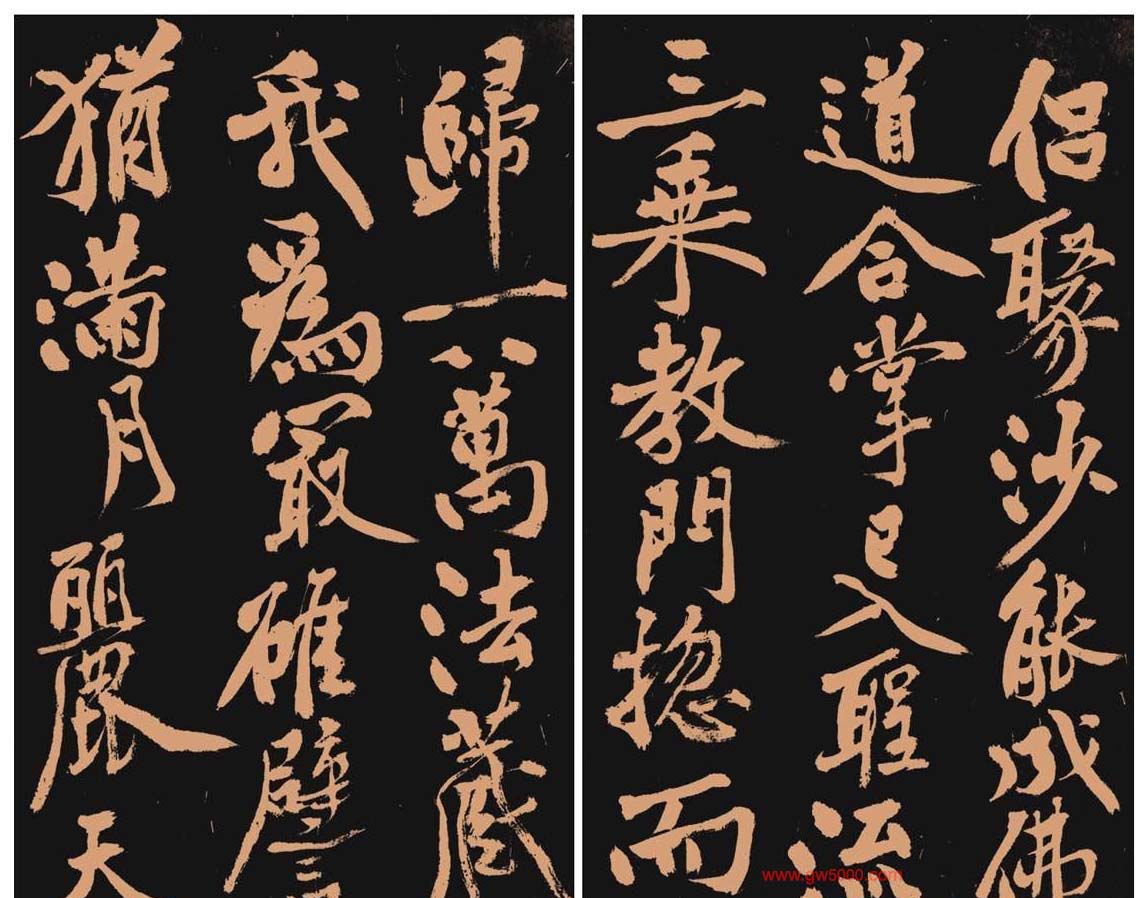 侶聚沙能成佛
道合掌已入聖流
三乘教門揔而
歸一八萬法藏
我爲最雄譬
猶滿月麗天
www.gw5000.com